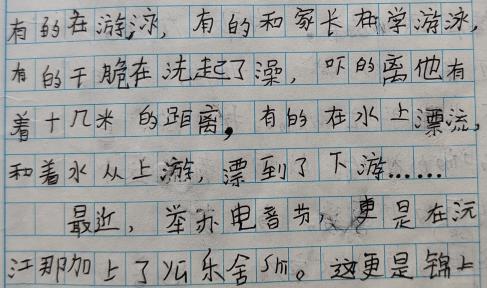 有的在游泳，有的和家长在学游泳，
有的干脆在洗起了澡，吓的离他有
着十几米的距离，有的在水上漂流，
和着水从上游，漂到了下游……
最近，举办电音节，更是在沅
江那加上了 乐舍shi。这更是锦上